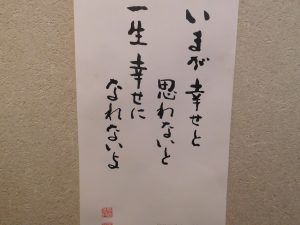 いまが幸せと
思わないと
一生幸せに
なれないよ